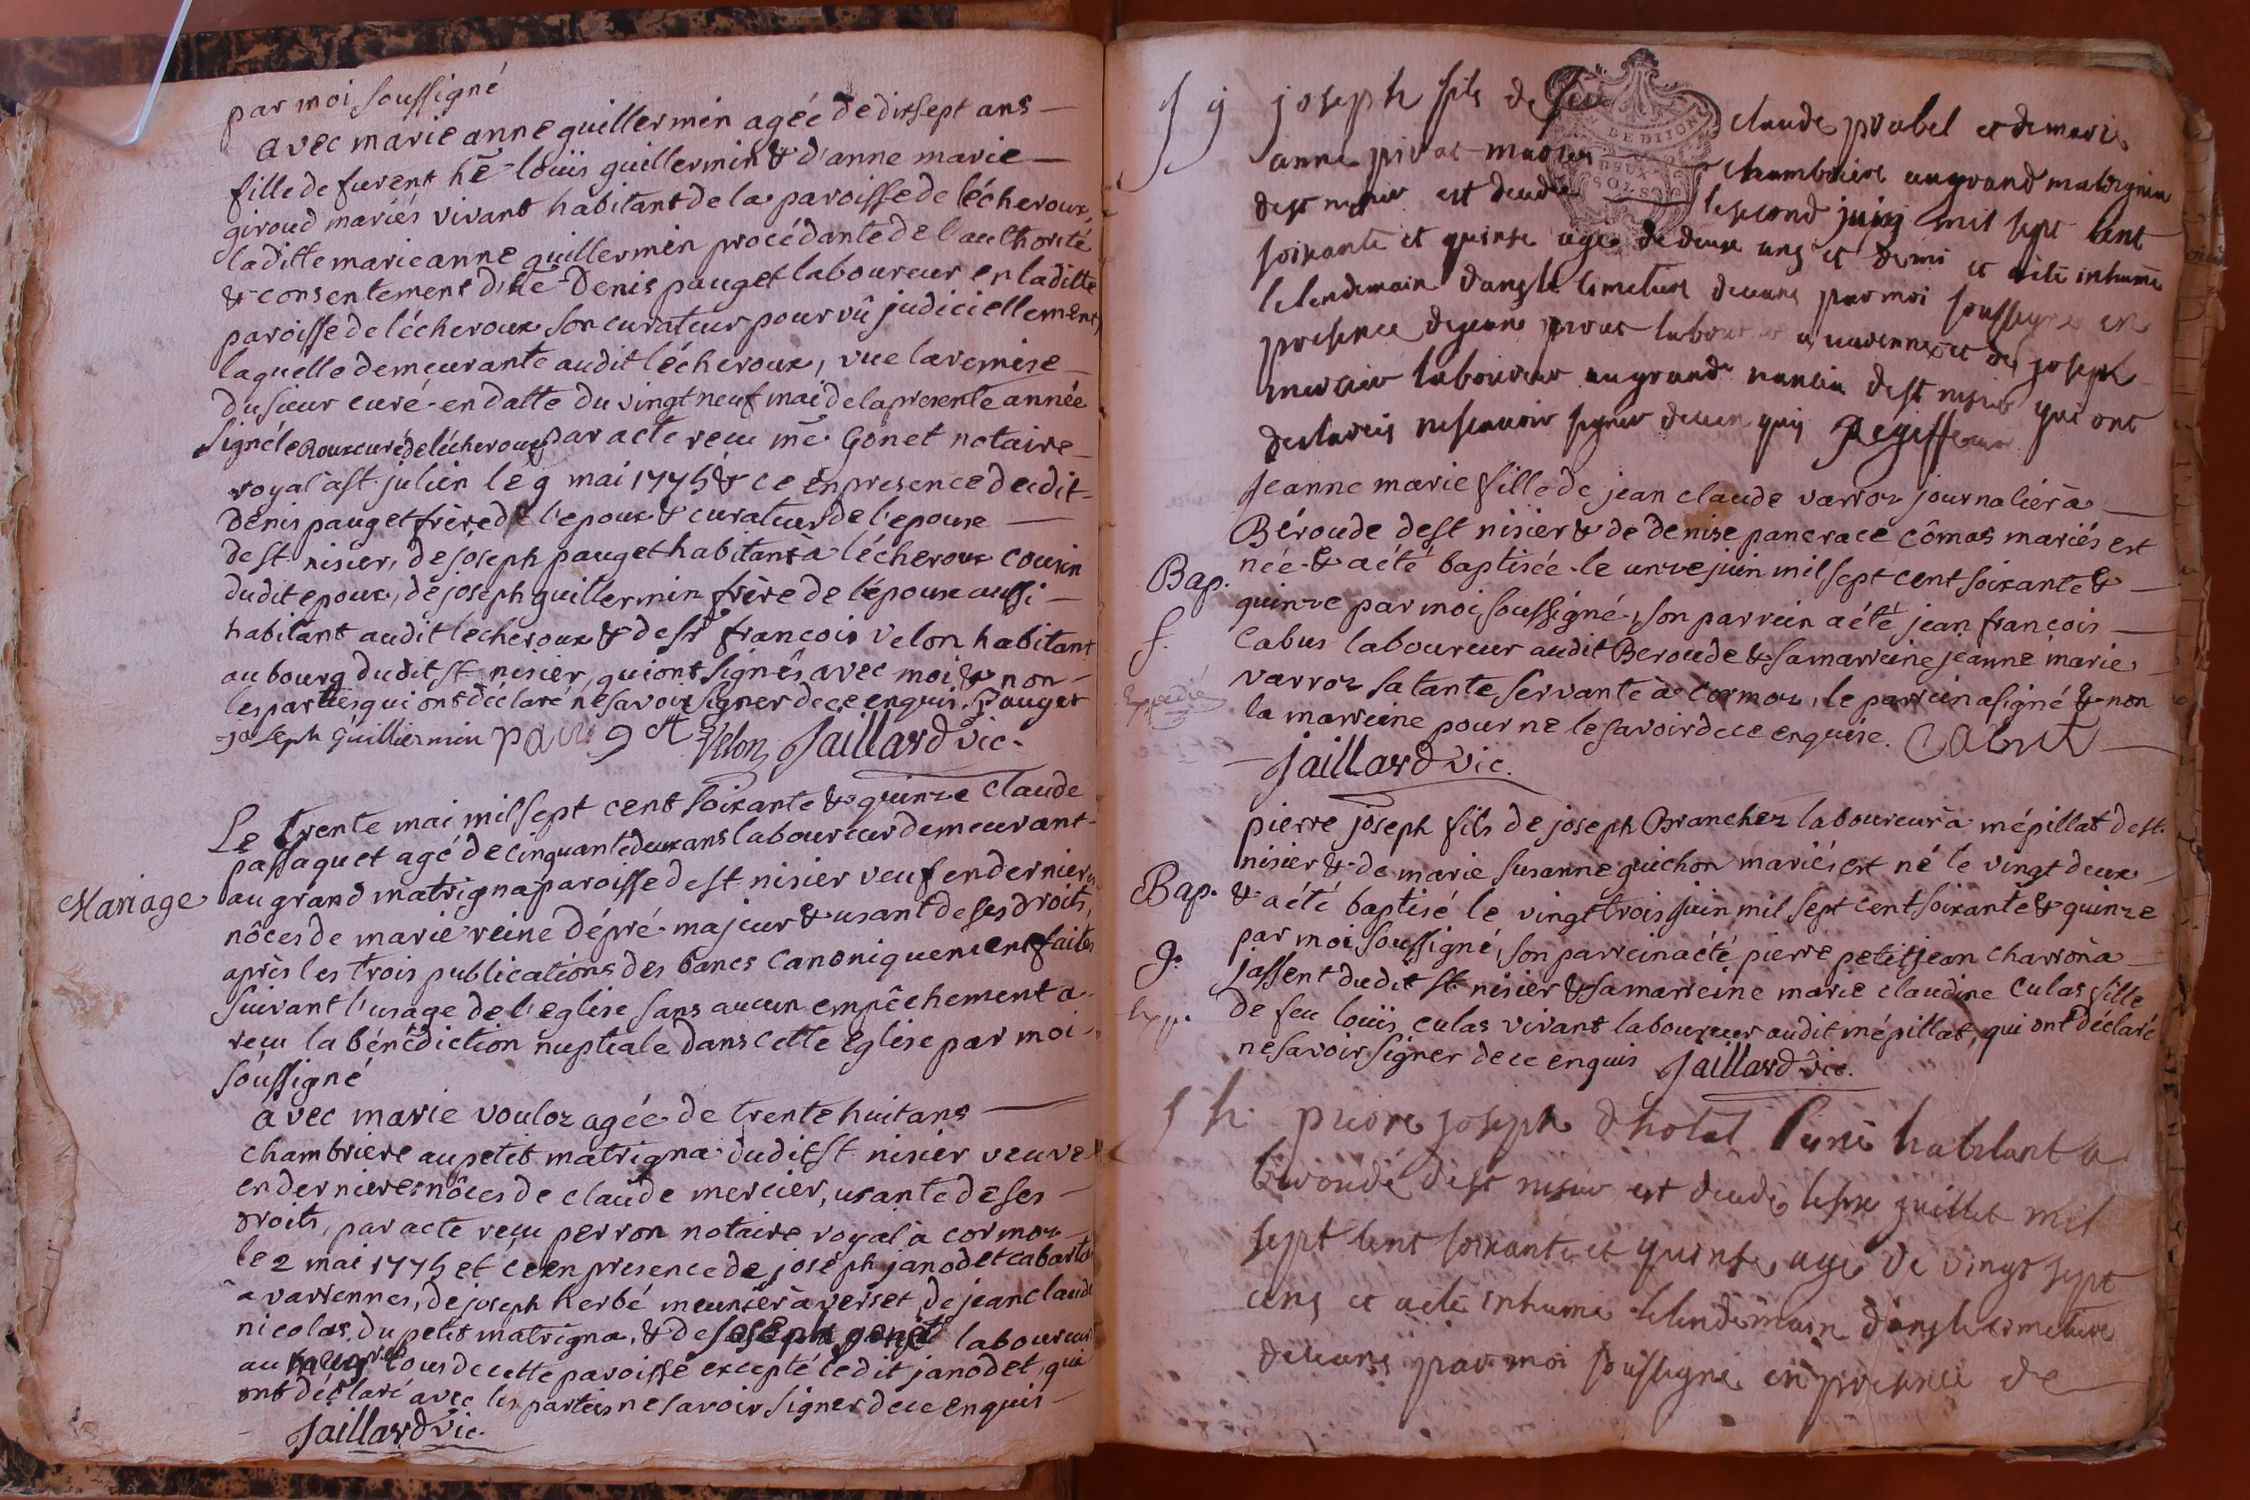 par moi soussigné
avec marie anne guillermin agée de dixsept ans
fille de furent hē. loüis guillermin & d'anne marie
giroud mariés vivant habitants de la paroisse de lécheroux,
laditte marie anne guillermin procédante de l'authorité
& consentement d'hē. Denis pauget laboureur en laditte
paroisse de lécheroux son curateur pourvû judiciellement,
laquelle demeurante audit lécheroux, vue la remise
du sieur curé en datte du vingt neuf mai de la presente année
signé le Roux curé de lécheroux par acte recu mē. Gonet notaire
royal à st. julien le 9 mai 1775 & ce en presence dudit
Denis pauget frère de l'epoux & curateur de l'epouse
de st. nisier, de joseph pauget habitant à lécheroux cousin
dudit epoux, de joseph guillermin frère de l'épouse aussi
habitant audit lécheroux & de sr. francois velon habitant
au bourg dudit st nisier, qui ont signés avec moi & non
les parties qui ont déclaré ne savoir signer de ce enquis. Pauget
joseph guilliermin Velon Jaillard vic.
Le trente mai mil sept cent soixante & quinze claude
passaquet agé de cinquante deux ans laboureur demeurant
Mariage
au grand matrigna paroisse de st. nisier veuf en dernieres
nôces de marie reine dépré majeur & usant de ses droits,
après les trois publications des bancs canoniquement faites
suivant l'usage de l'eglise sans aucun empêchement a
recu la bénédiction nuptiale dans cette eglise par moi
soussigné
avec marie vouloz agée de trente huit ans
chambriere au petit matrigna dudit st nisier veuve
en dernieres nôces de claude mercier, usante de ses
droits, par acte recu perron notaire royal à cormoz
le 2 mai 1775 et ce en presence de joseph janodet cabartier
à varennes, de joseph herbé meunier à verset, de jean claude
nicolas, du petit matrigna, & de joseph genet laboureur
au tous de cette paroisse excepté ledit janodet, qui
ont déclaré avec les parties ne savoir signer de ce enquis
Jaillard vic.
S g joseph fils de feu claude prabel et de marie
anne pivat maries chambriere au grand matrignia
de st nisier est decede le second juin mil sept cent
soixante et quinse age de deux ans et demi et a ete inhumé
le lendemain dans le cimetiere deceans par moi soussigne en
presence de jeane pivat et de joseph
mercier laboureur au grand de st nisier qui ont
declarés ne scavoir signer de ce enquis
jeanne marie fille de jean claude varroz journalier à
Béroude de st nisier & de denise pancrace cômas mariés est
Bap.
née & a été baptisée le unze juin mil sept cent soixante &
quinze par moi soussigné, son parrein a été jean françois
f.
Cabus laboureur audit Beroude & sa marreine jeanne marie
varroz sa tante servante à cormoz, le parrein a signé & non
Expedié
la marreine pour ne le savoir de ce enquise. Cabut
Jaillard vic.
pierre joseph fils de joseph Branchez laboureur à mépillat de st.
nisier & de marie susanne guichon mariés est né le vingt deux
Bap.
& a été baptisé le vingt trois juin mil sept cent soixante & quinze
par moi soussigné, son parrein a été pierre petitjean charron à
g.
jassent dudit st. nisier & sa marreine marie claudine culas fille
Exp.
de feu loüis culas vivant laboureur audit mépillat, qui ont déclaré
ne savoir signer de ce enquis Jaillard vic.
S h. piere joseph dhotal habitant a
beroude de st nisier est decede le juillet mil
sept cent soixante et quinse age de vingt sept
ans et a ete inhumé le lendemain dans le cimetiere
deceans par moi soussigné en presence de